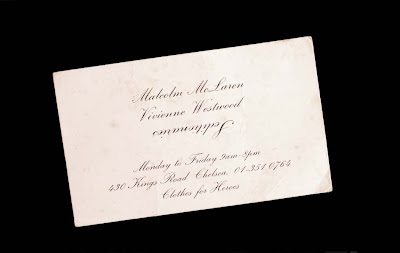 Malcolm McLaren
Vivienne Westwood
Seditionaries
Monday to Friday 9am-9pm
430 Kings Road Chelsea. 01-351 0764
Clothes for Heroes